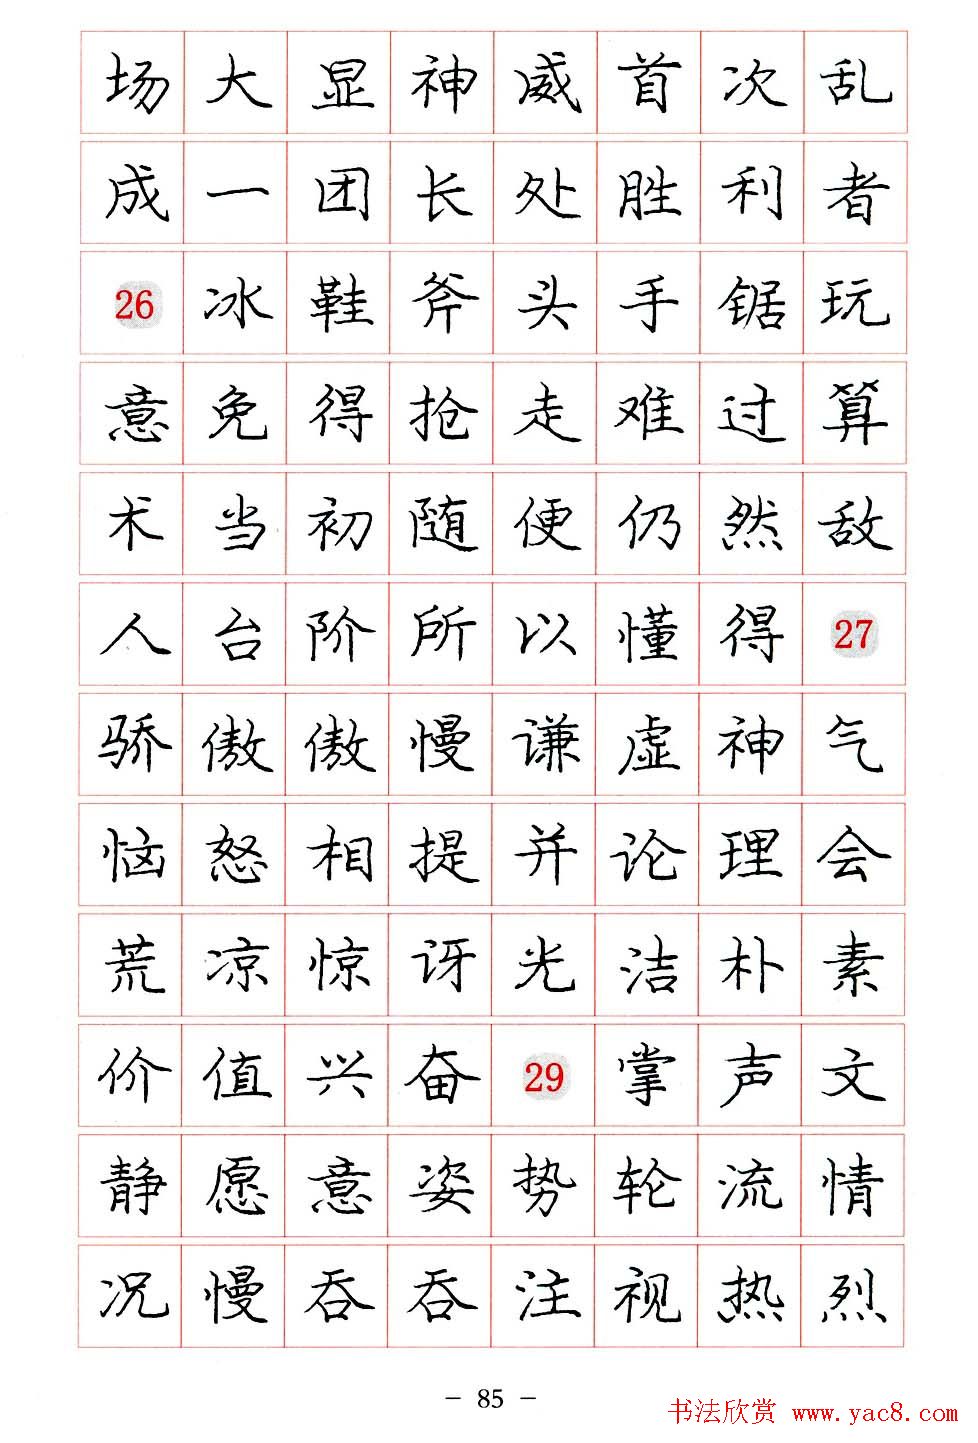 场大显神威首次乱
成一团长处胜利者
26冰鞋斧头手锯玩
意免得抢走难过算
术当初随便仍然敌
人台阶所以懂得27
骄傲傲慢谦虚神气
恼怒相提并论理会
荒凉惊讶光洁朴素
价值兴奋29掌声文
静愿意姿势轮流情
况慢吞吞注视热烈
– 85 –
书法欣赏 www.yac8.com